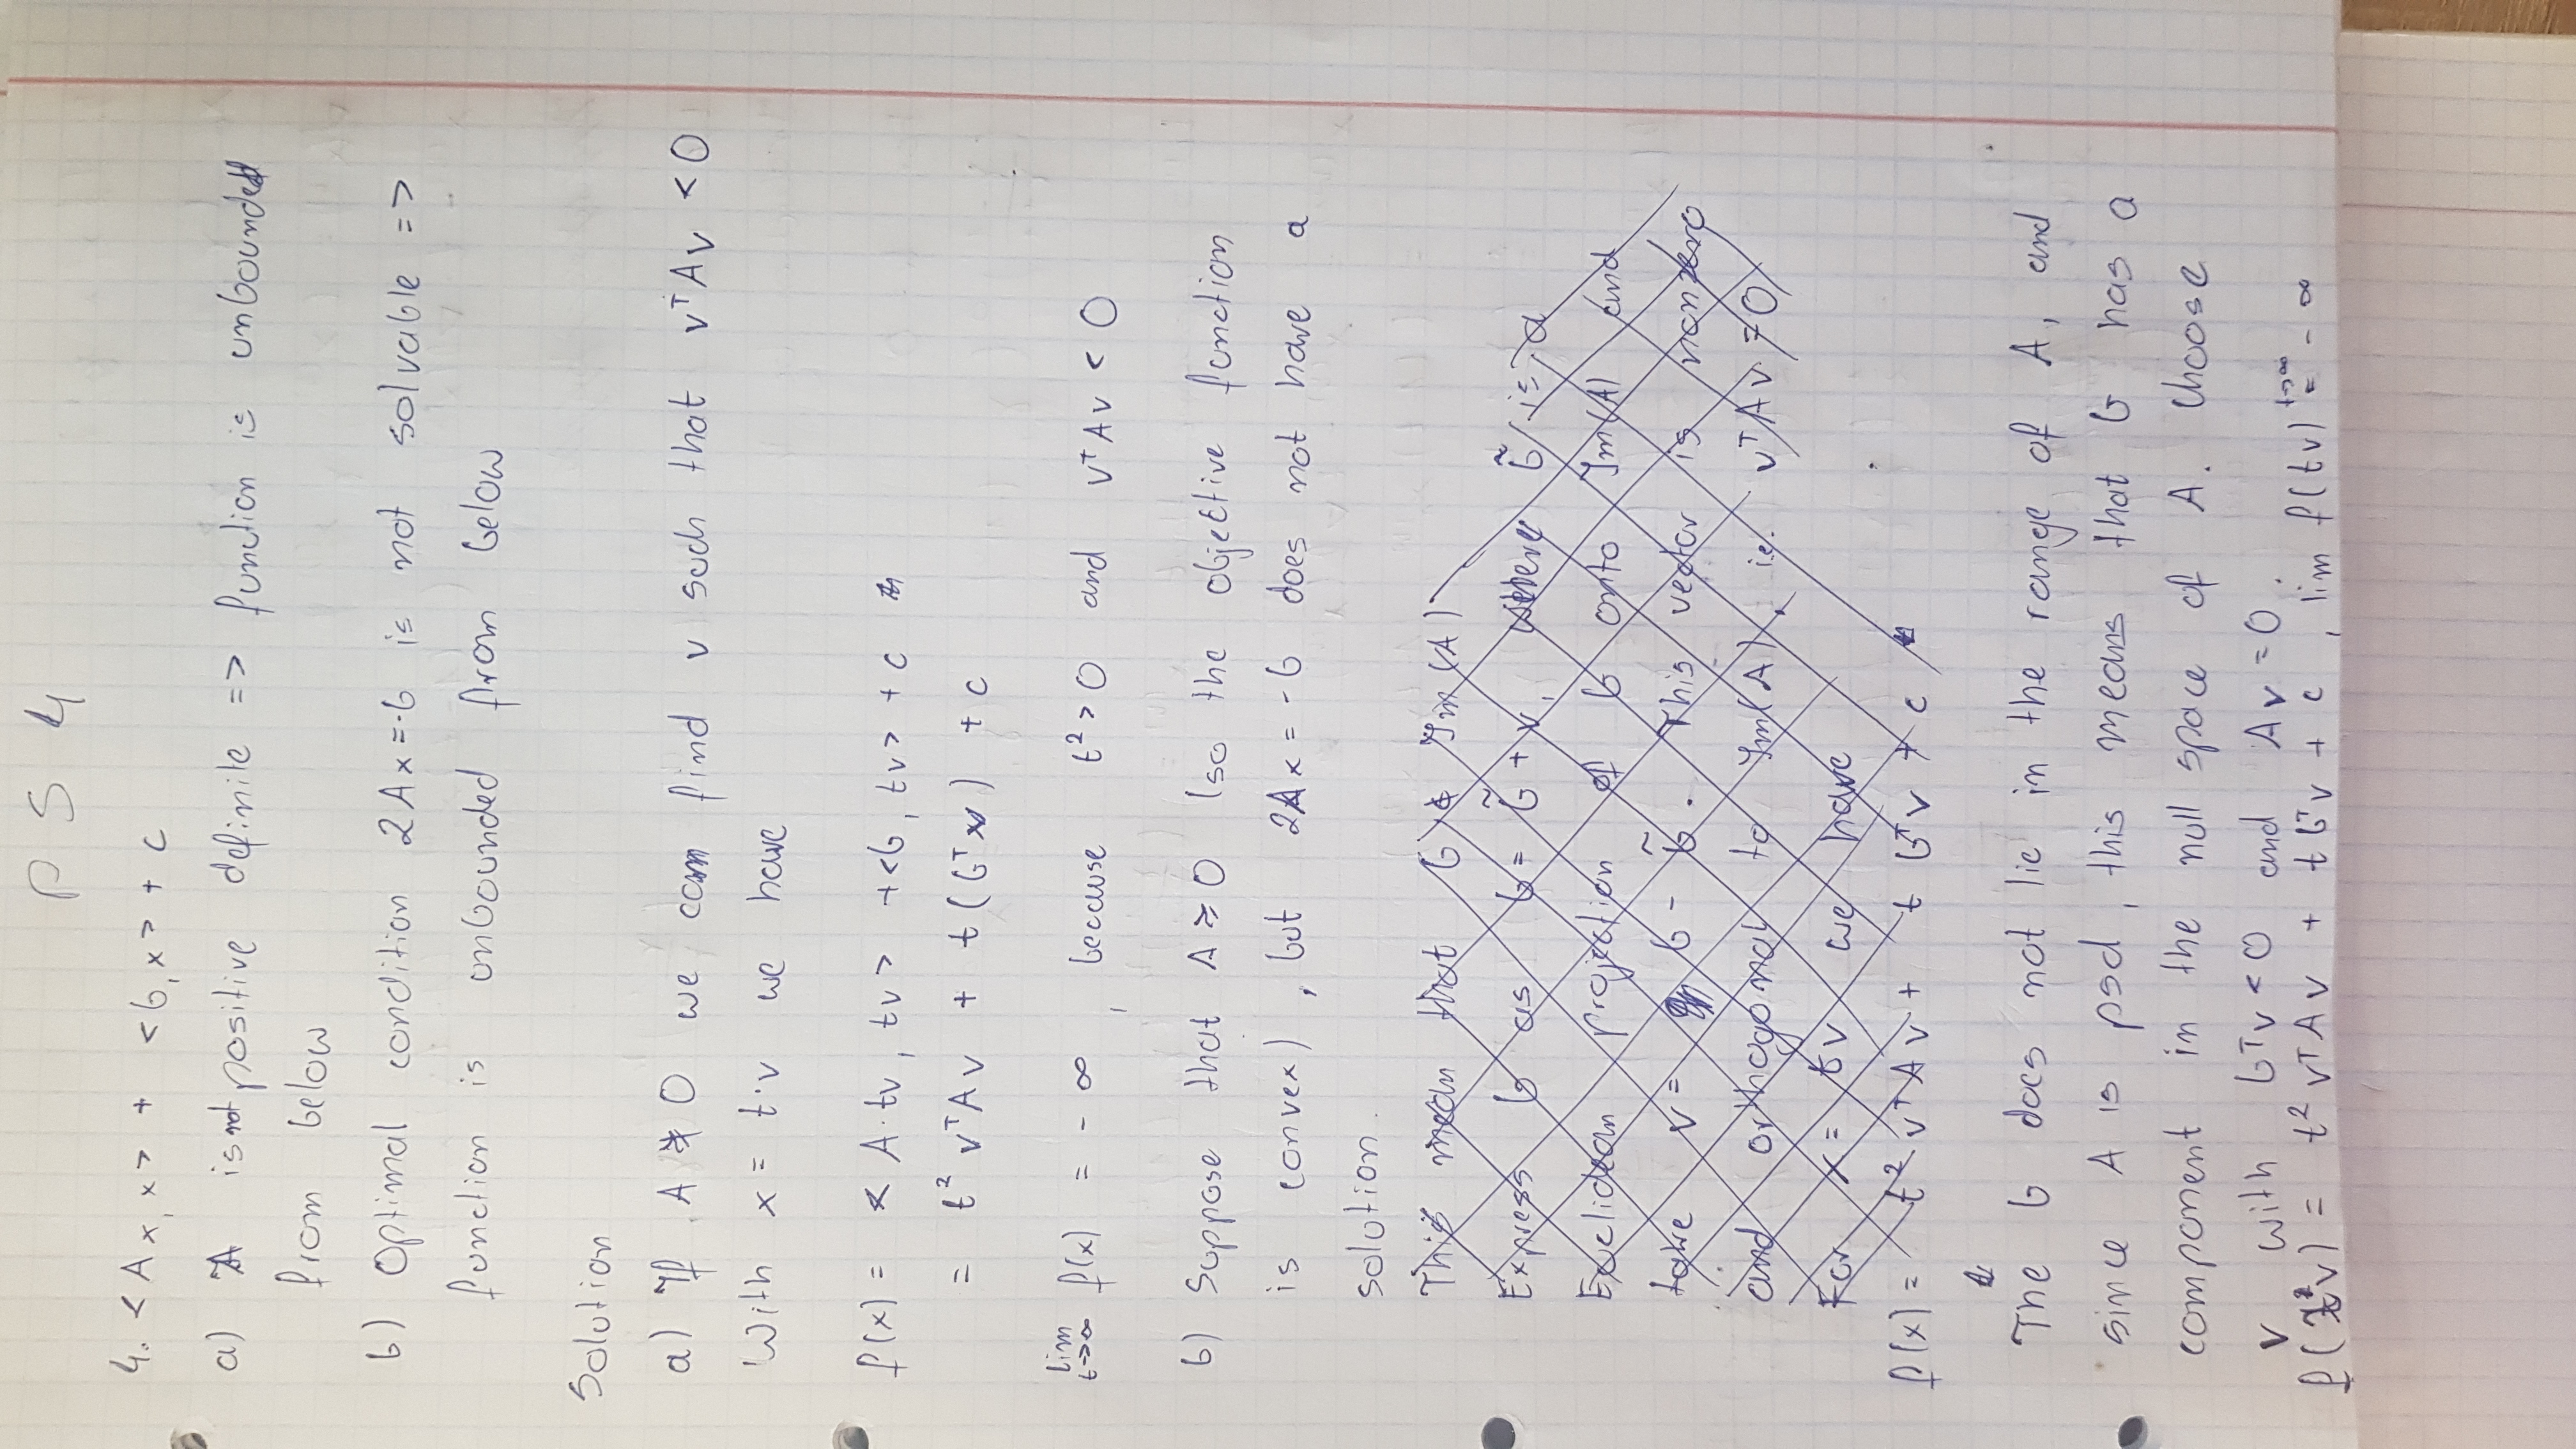 PS 4
4. <Ax, x> + <b, x> + c
a) A is not positive definite => function is unbounded
from below
b) Optimal condition 2Ax = -b is not solvable =>
function is unbounded from below
Solution
a) If A ⋡ 0 we can find v such that vᵀAv < 0
With x = t·v we have
f(x) = <A·tv, tv> + <b, tv> + c
= t² vᵀAv + t(bᵀv) + c
lim t->∞ f(x) = -∞, because t² > 0 and vᵀAv < 0
b) Suppose that A ≽ 0 (so the objective function
is convex), but 2Ax = -b does not have a
solution.
This mean that b ∉ Im(A)
Express b as b = b̃ + v, where b̃ is a
Euclidean projection of b onto Im(A) and
take v = b - b̃. This vector is nonzero
and orthogonal to Im(A), i.e. vᵀAv = 0
For x = tv we have
f(x) = t² vᵀAv + t bᵀv + c
The b does not lie in the range of A, and
since A is psd, this means that b has a
component in the null space of A. Choose
v with bᵀv < 0 and Av = 0.
f(tv) = t² vᵀAv + t bᵀv + c, lim f(tv) t->∞ = -∞